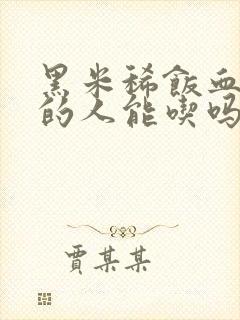 黑米稀飯血
的人能喫吗
賈某某